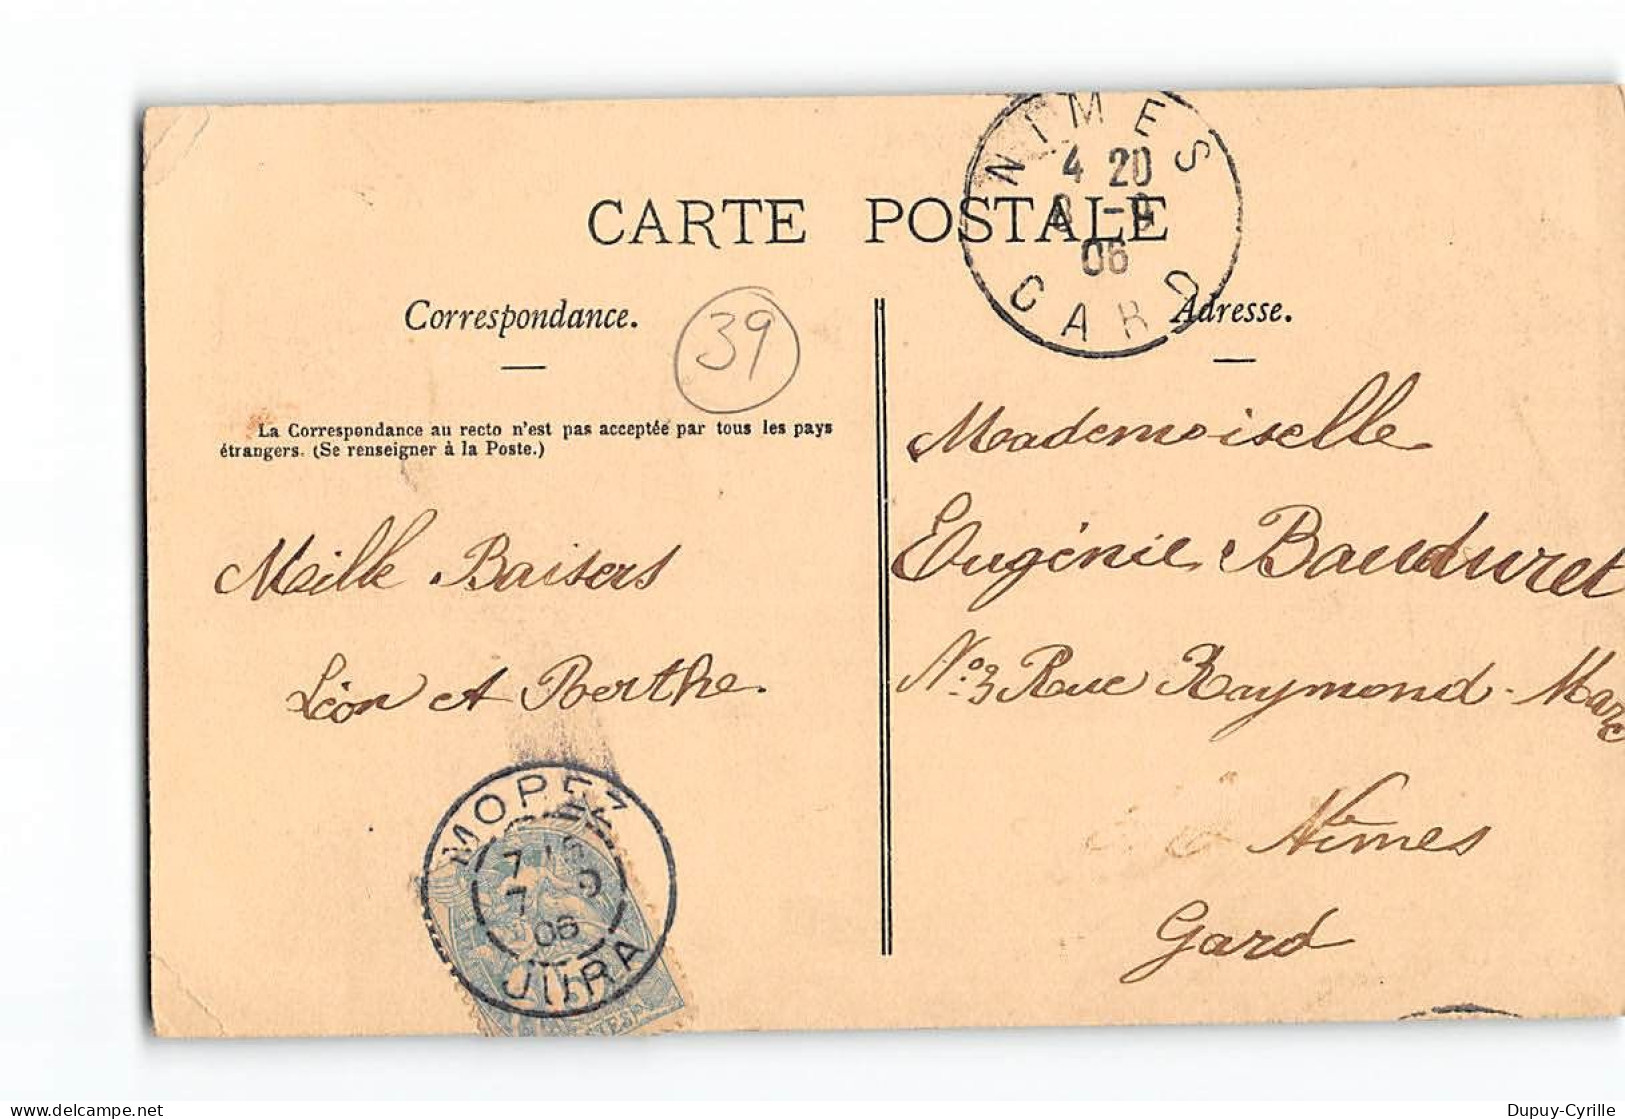 NIMES
4 20
8 -9
06
GARD
CARTE POSTALE
Correspondance.
39
Adresse.
La Correspondance au recto n'est pas acceptée par tous les pays
étrangers. (Se renseigner à la Poste.)
Mille Baisers
Léon et Berthe.
Mademoiselle
Eugénie Bauduret
N° 3 Rue Raymond-Marc
Nîmes
Gard
MOREZ
7
7 9
06
JURA
Dupuy-Cyrille